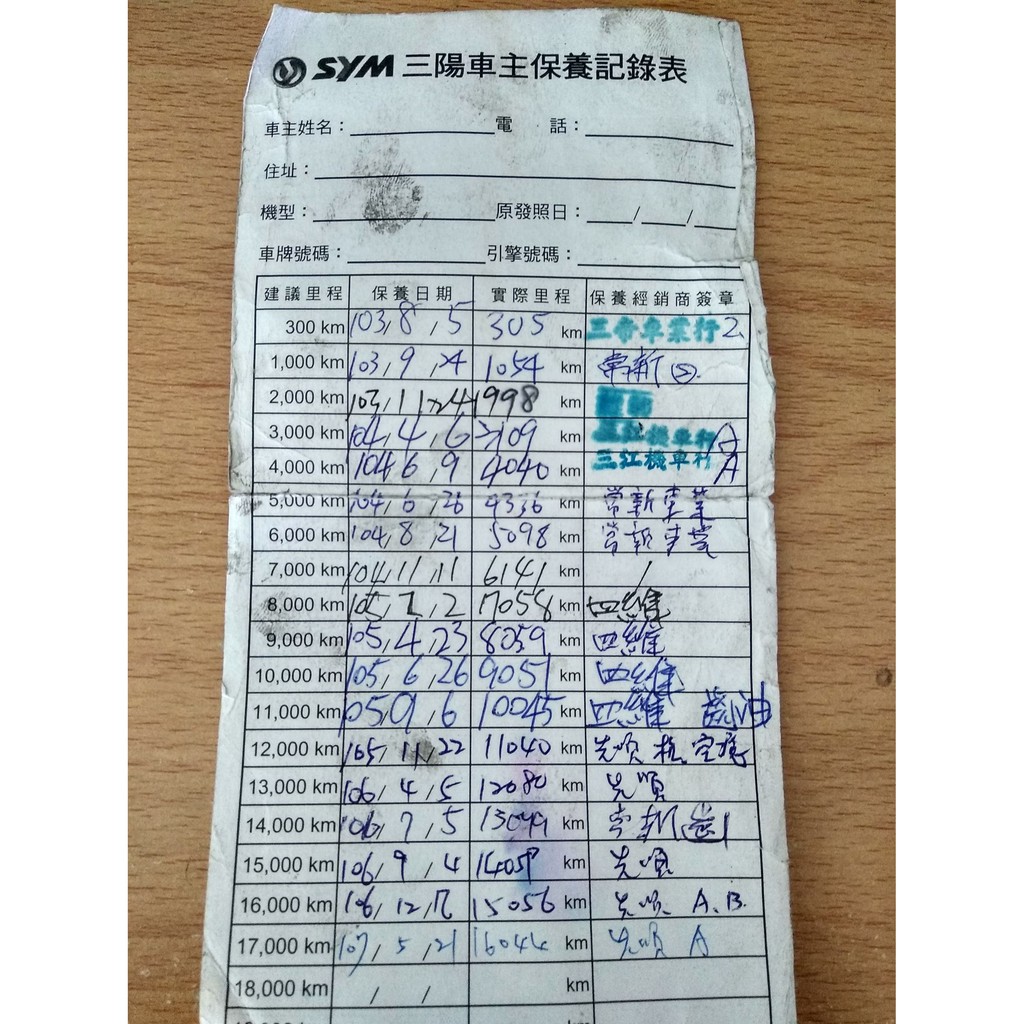 SYM 三陽車主保養記錄表
車主姓名： 電 話：
住址：
機型： 原發照日： / /
車牌號碼： 引擎號碼：
建議里程 保養日期 實際里程 保養經銷商簽章
300 km 103,8,5 305 km 車業行 2
1,000 km 103,9,24 1054 km 常新 ②.
2,000 km 103,11,24 1998 km
3,000 km 104,4,6 3109 km 三江機車行 A
4,000 km 104,6,9 4040 km 三江機車行 A
5,000 km 104,6,26 4336 km 常新車業
6,000 km 104,8,21 5098 km 常新車業
7,000 km 104,11,11 6141 km /
8,000 km 105,2,2 7058 km 四維
9,000 km 105,4,23 8059 km 四維
10,000 km 105,6,26 9051 km 四維
11,000 km 105,9,6 10045 km 四維 齒油
12,000 km 105,11,22 11040 km 先順 機,空濾
13,000 km 106,4,5 12080 km 先順
14,000 km 106,7,5 13049 km 常新 齒
15,000 km 106,9,4 14059 km 先順
16,000 km 106,12,12 15056 km 先順 A.B.
17,000 km 107,5,21 16044 km 先順 A
18,000 km / / km